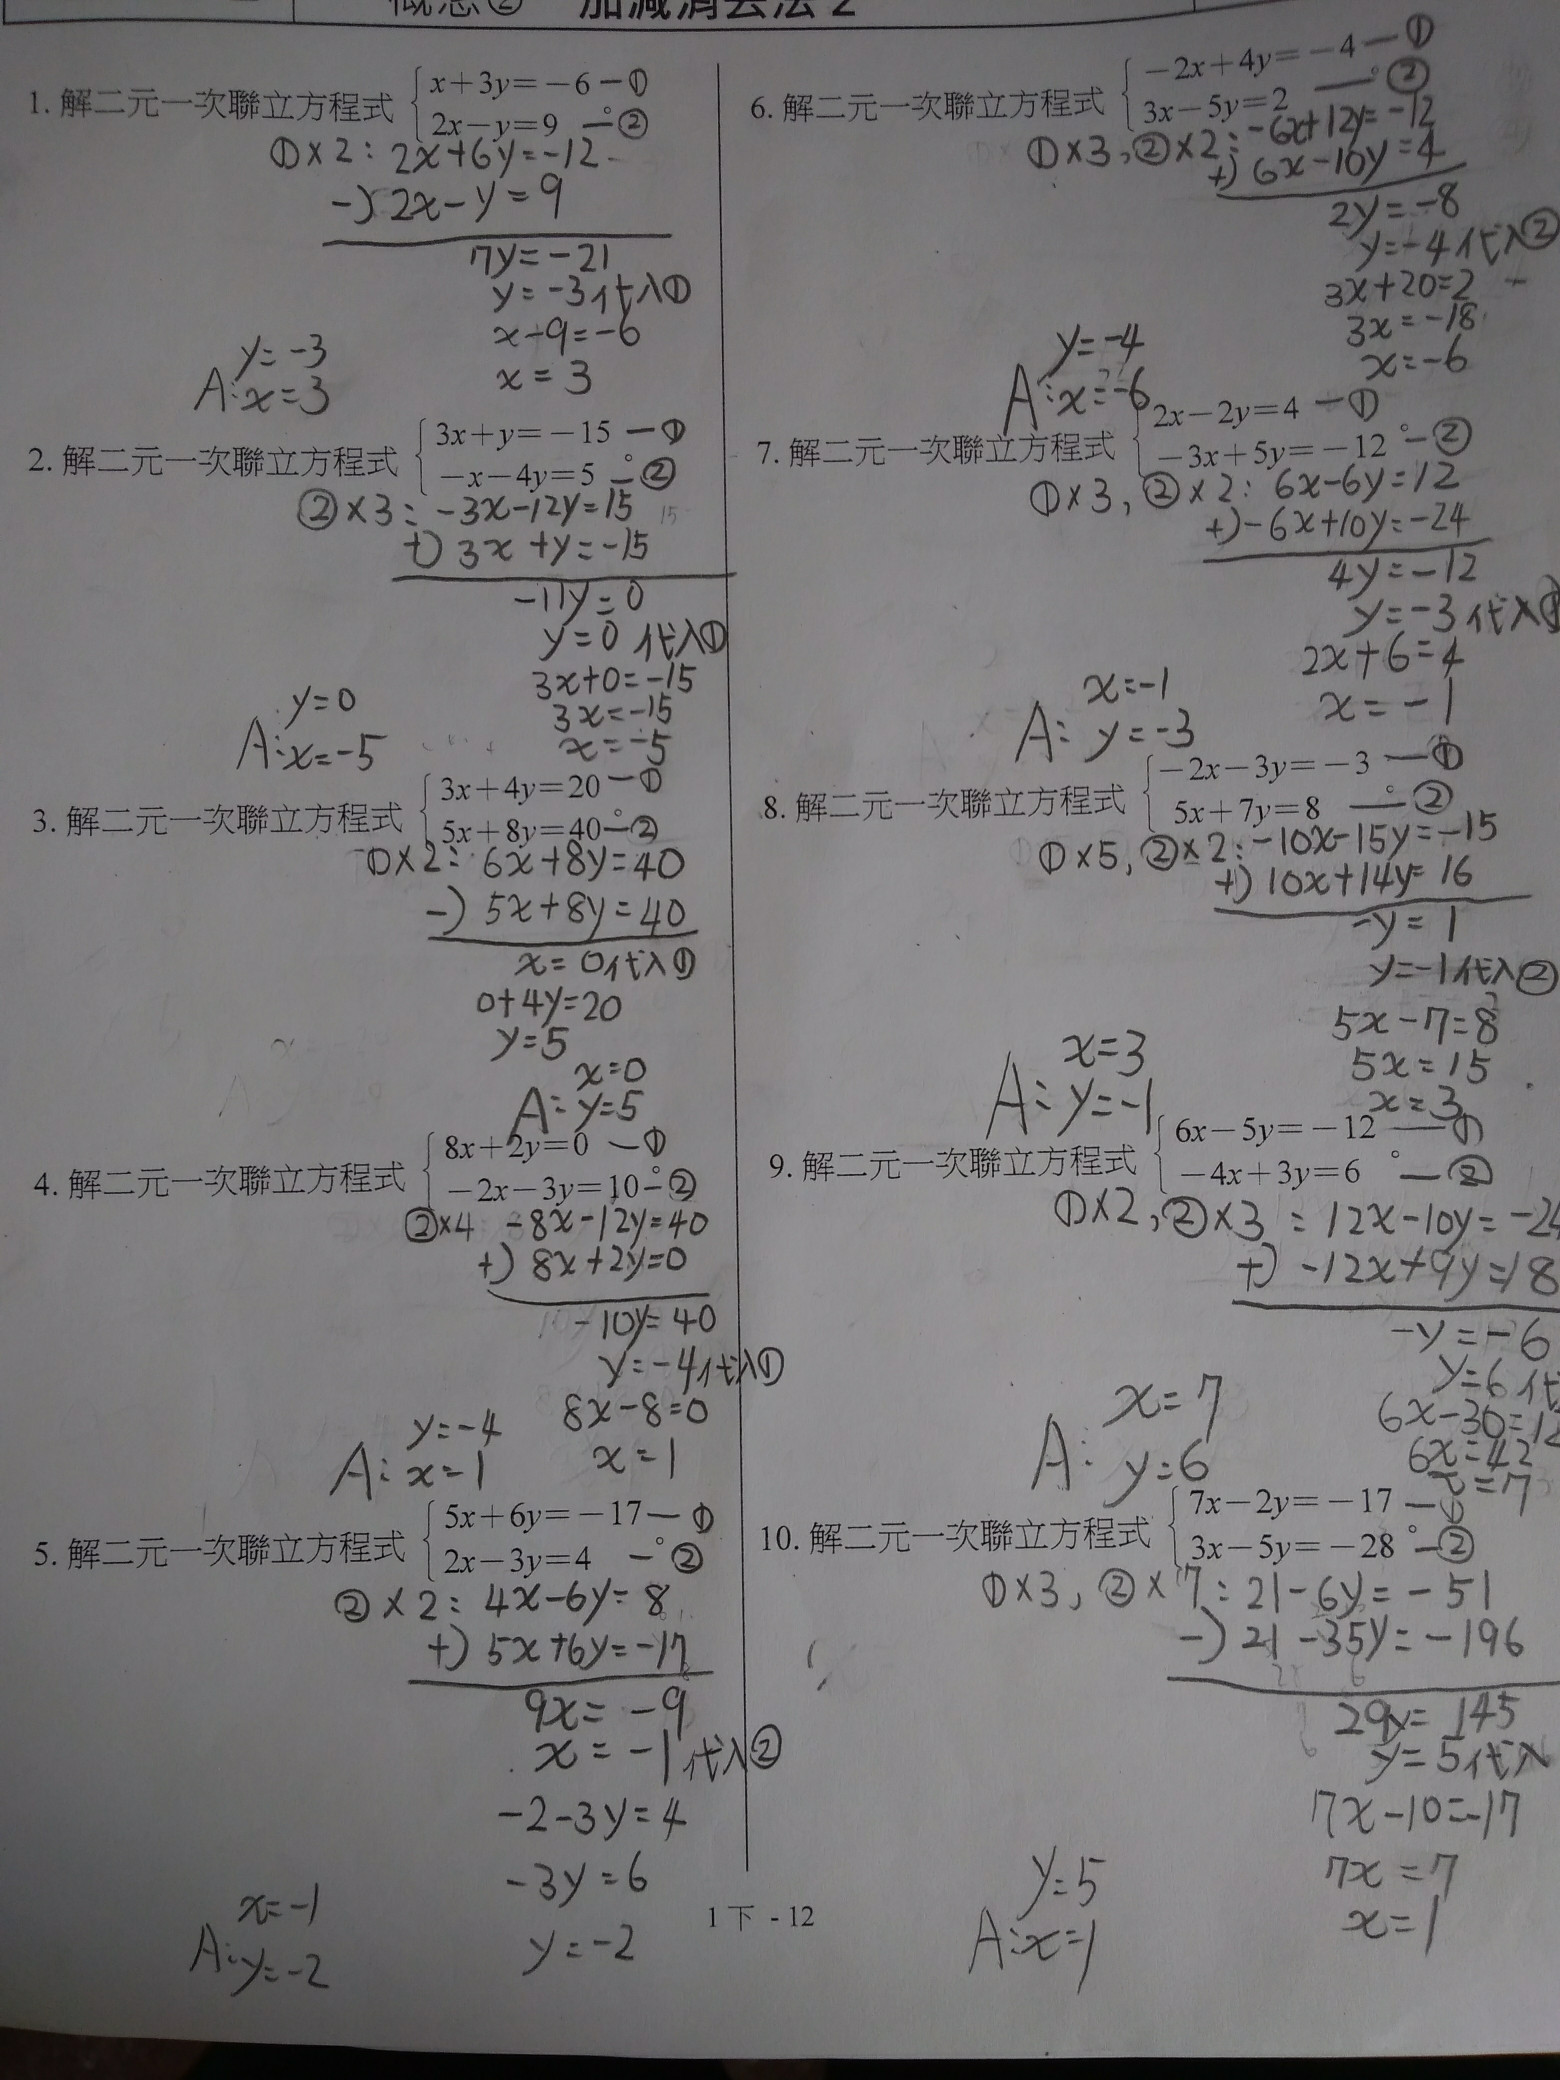 概念② 加減消去法2
1. 解二元一次聯立方程式 { x+3y=-6 —①
2x-y=9 。—②
①×2: 2x+6y=-12
-) 2x-y=9
7y=-21
y=-3代入①
x-9=-6
x=3
y=-3
A:x=3
2. 解二元一次聯立方程式 { 3x+y=-15 —①
-x-4y=5 。—②
②×3: -3x-12y=15
+) 3x+y=-15
-11y=0
y=0 代入①
3x+0=-15
3x=-15
x=-5
y=0
A:x=-5
3. 解二元一次聯立方程式 { 3x+4y=20 —①
5x+8y=40。—②
①×2: 6x+8y=40
-) 5x+8y=40
x=0代入①
0+4y=20
y=5
x=0
A: y=5
4. 解二元一次聯立方程式 { 8x+2y=0 —①
-2x-3y=10。—②
②×4 -8x-12y=40
+) 8x+2y=0
-10y=40
y=-4代入①
8x-8=0
x=1
y=-4
A: x=1
5. 解二元一次聯立方程式 { 5x+6y=-17 —①
2x-3y=4 。—②
②×2: 4x-6y=8
+) 5x+6y=-17
9x=-9
x=-1代入②
-2-3y=4
-3y=6
y=-2
x=-1
A: y=-2
6. 解二元一次聯立方程式 { -2x+4y=-4 —①
3x-5y=2 。—②
①×3,②×2: -6x+12y=-12
+) 6x-10y=4
2y=-8
y=-4代入②
3x+20=2
3x=-18
x=-6
y=-4
A:x=-6
7. 解二元一次聯立方程式 { 2x-2y=4 —①
-3x+5y=-12 。—②
①×3, ②×2: 6x-6y=12
+) -6x+10y=-24
4y=-12
y=-3代入①
2x+6=4
x=-1
x=-1
A: y=-3
8. 解二元一次聯立方程式 { -2x-3y=-3 —①
5x+7y=8 。—②
①×5, ②×2: -10x-15y=-15
+) 10x+14y=16
-y=1
y=-1代入②
5x-7=8
5x=15
x=3
x=3
A: y=-1
9. 解二元一次聯立方程式 { 6x-5y=-12 —①
-4x+3y=6 。—②
①×2, ②×3 : 12x-10y=-24
+) -12x+9y=18
-y=-6
y=6代
6x-30=12
6x=42
x=7
x=7
A: y=6
10. 解二元一次聯立方程式 { 7x-2y=-17 —
3x-5y=-28 。—②
①×3, ②×7: 21-6y=-51
-) 21-35y=-196
29y=145
y=5代入
7x-10=-17
7x=7
x=1
y=5
A:x=1
1下 - 12